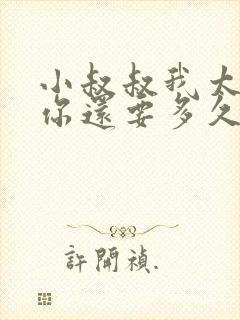 小叔叔我大
你還要多久
許開禎.